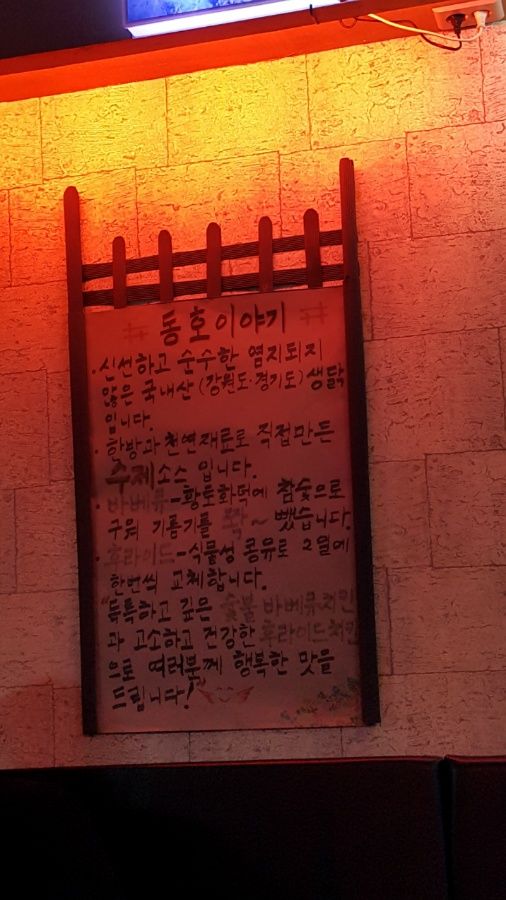 # 동호이야기 #
· 신선하고 순수한 염지되지
않은 국내산 (강원도·경기도) 생닭
입니다.
· 한방과 천연재료로 직접만든
수제소스 입니다.
· 바베큐-황토화덕에 참숯으로
구워 기름기를 쫙~ 뺐습니다.
· 후라이드-식물성 콩유로 2일에
한번씩 교체합니다.
"독특하고 깊은 숯불바베큐치킨
과 고소하고 건강한 후라이드치킨
으로 여러분께 행복한 맛을
드립니다!"